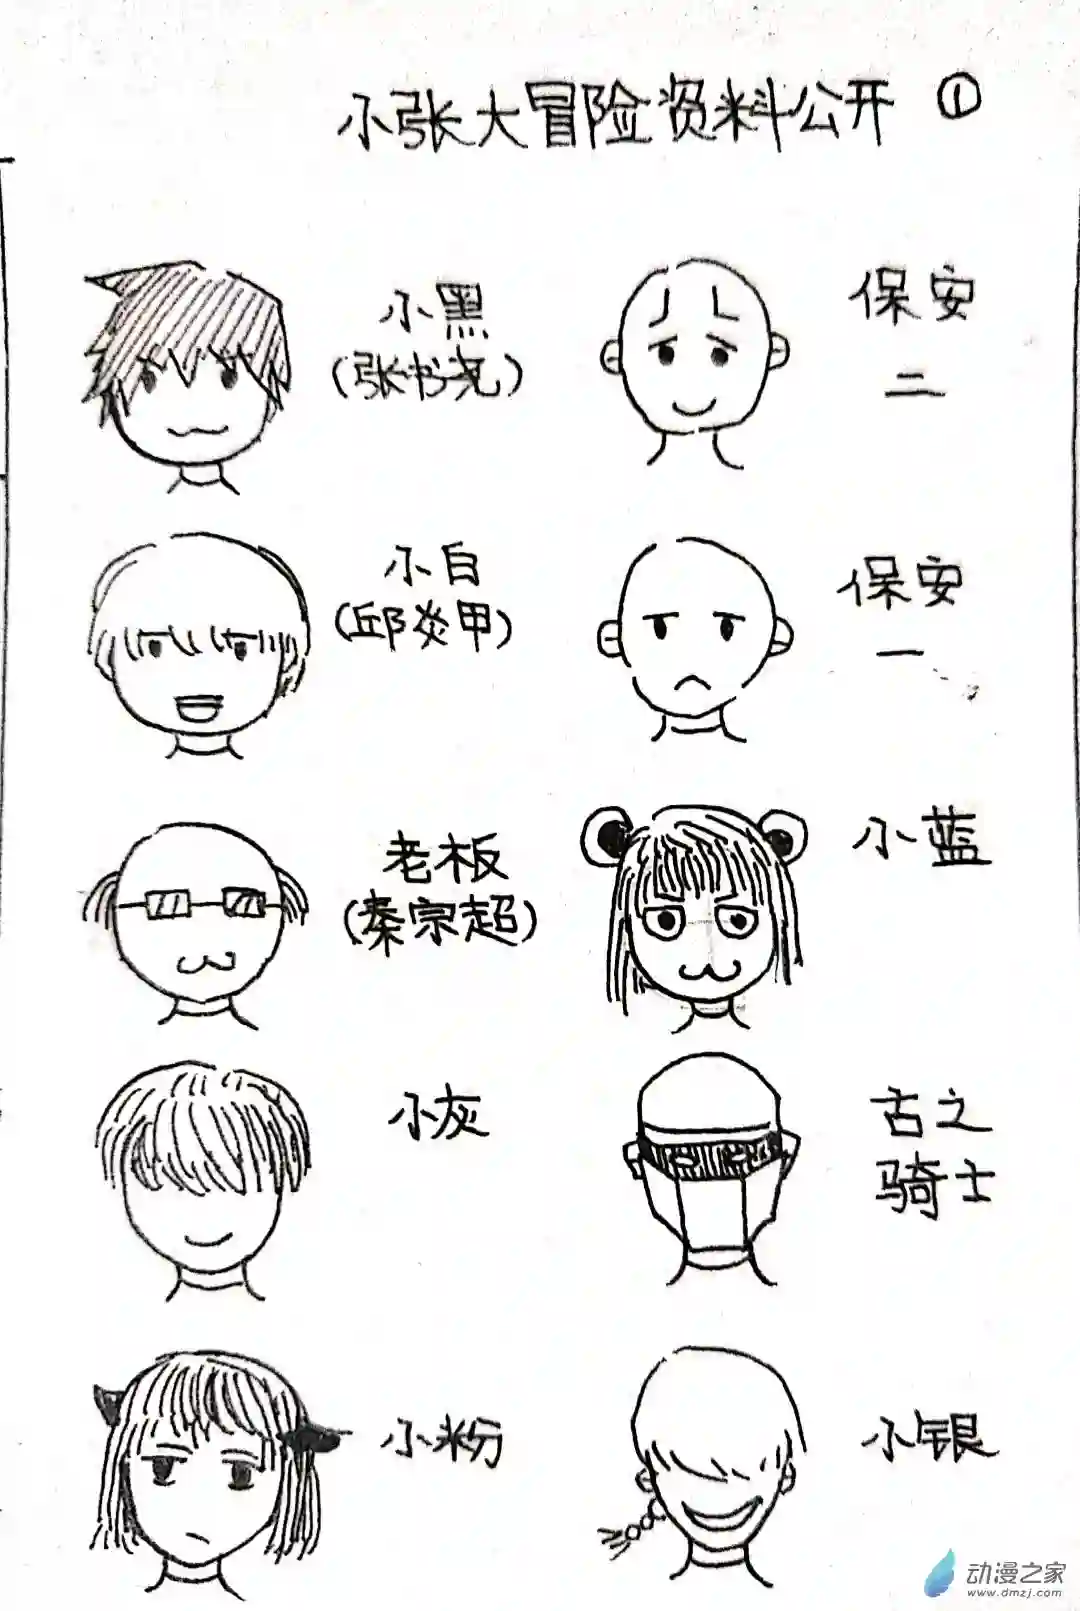 小张大冒险资料公开 ①
小黑
(张书尧)
保安
二
小白
(邱炎甲)
保安
一
老板
(秦宗超)
小蓝
小灰
古之
骑士
小粉
小银
动漫之家
www.dmzj.com